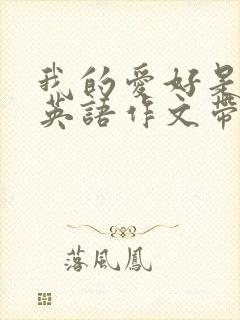 我的愛好是
英語作文帶
落風鳳